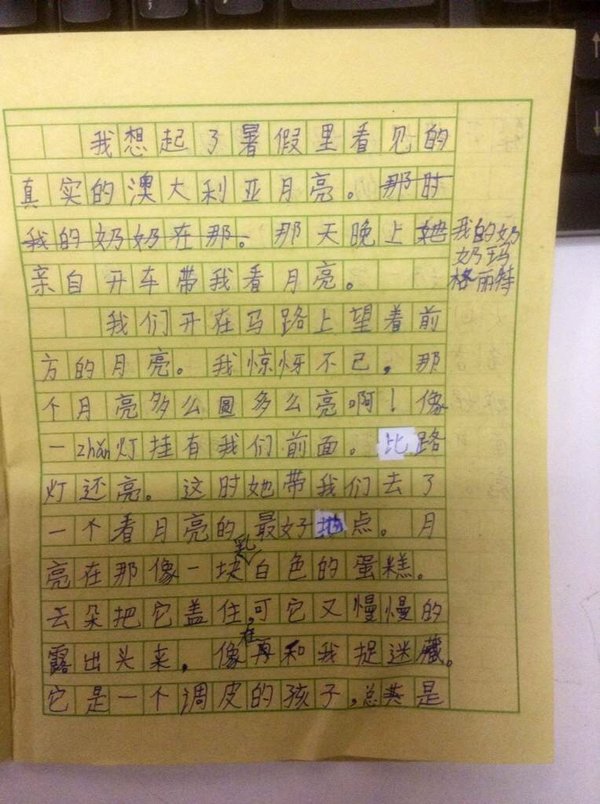 我想起了暑假里看见的
真实的澳大利亚月亮。那时
我的奶奶在那。那天晚上她
我的奶
奶玛
格丽特
亲自开车带我看月亮。
我们开在马路上望着前
方的月亮。我惊怀不已，那
个月亮多么圆多么亮啊！像
一zhǎn灯挂有我们前面。比路
灯还亮。这时她带我们去了
一个看月亮的最好地点。月
亮在那像一块乳白色的蛋糕。
云朵把它盖住，可它又慢慢的
露出头来，像在再和我捉迷藏。
它是一个调皮的孩子，总其是